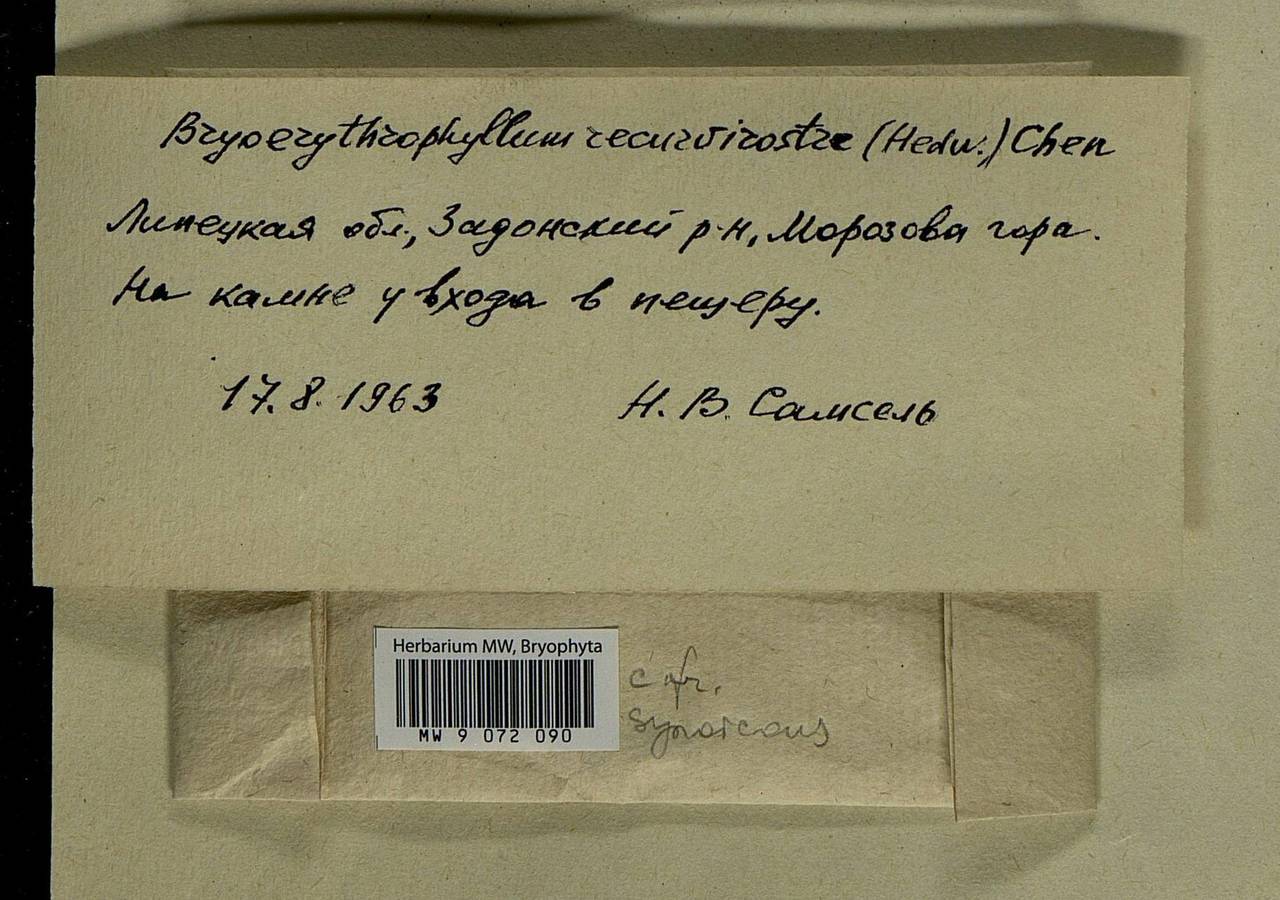 Bryoerythrophyllum recurvirostre (Hedw.) Chen
Липецкая обл., Задонский р-н, Морозова гора.
На камне у входа в пещеру.
17.8.1963
Н. В. Самсель
Herbarium MW, Bryophyta
MW 9 072 090
c. fr.
synoicous